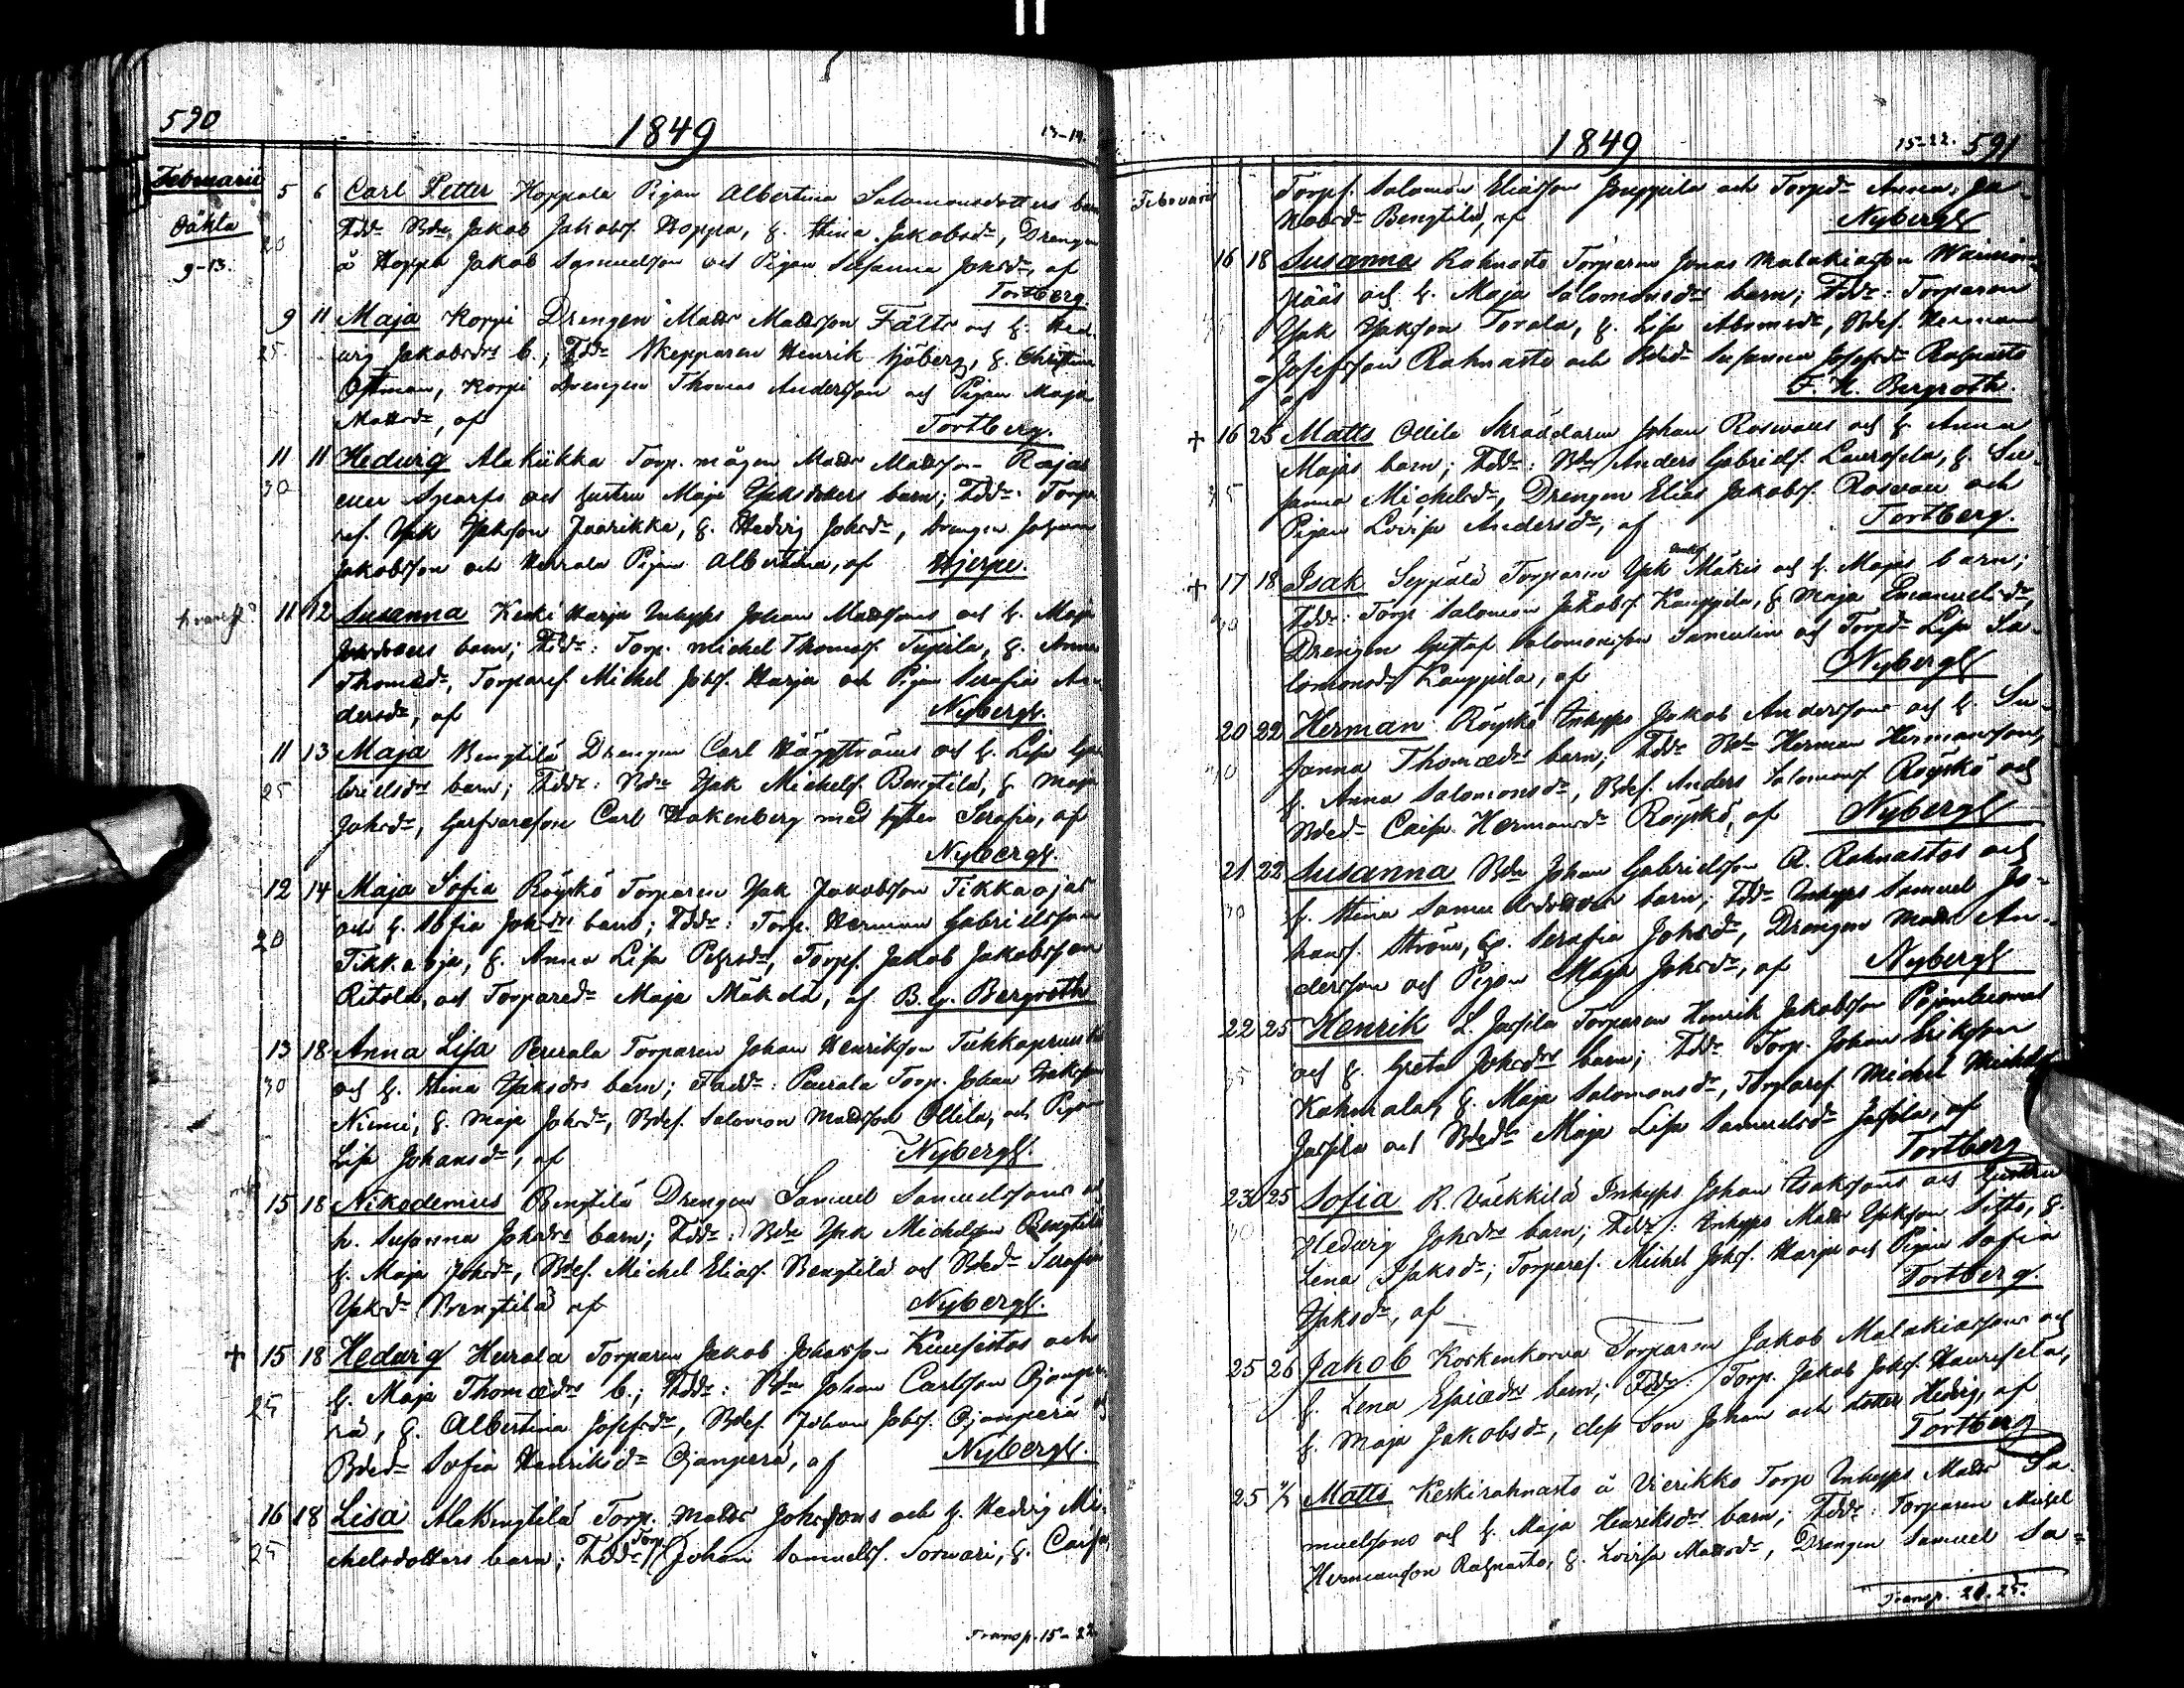 590
1849
13-19.
Februarii
Oäkta
9-13.
5 6 Carl Petter Hoppala Pigan Albertina Salomonsdotters barn
Fdd. Bdn Jakob Jakobss. Hoppa, h. Stina Jakobsdr, Drengen
20
å Hoppa Jakob Samuelsson och Pigan Susanna Johsdr, af
Tortberg.
9 11 Maja Korpi Drengen Matts Mattsson Fälts och h. Hed-
25 wig Jakobsdrs b.; Fddr Skepparen Henrik Sjöberg, h. Christina
Östman, Korpi Drengen Thomas Andersson och Pigan Maja
Mattsdr, af Tortberg.
11 11 Hedvig Alakiikka Torp. mågen Matts Mattsson Rajas
30 eller och hustru Maja Isaksdotters barn; Fddr: Torpa-
res. Isak Isaksson Jaarikka, h. Hedvig Johsdr, Drengen Johan
Jakobsson och Heurala Pigan Albertina, af Hjerpe.
11 12 Susanna Keski Harja Inhyses Johan Mattssons och h. Maja
barn; Fddr: Torp. Michel Thomass. Tupila, h. Anna
Thomædr, Torpares. Michel Johss. Harja och Pigan Serafia An-
dersdr, af Nybergh.
11 13 Maja Bengtilä Drengen Carl Häggströms och h. Lisa Ga-
25 brielsdrs barn; Fddr: Bdn Isak Michelss. Bengtilä, h. Maja
Johsdr, Garfvareson Carl Hakenberg med syster Serafia, af
Nybergh.
12 14 Maja Sofia Röyskö Torparen Isak Jakobsson Tikkaojas
och h. Sofia Johsdrs barn; Fddr: Torp. Herman Gabrielsson
20
Tikkaoja, h. Anna Lisa Petersdr, Torps. Jakob Jakobsson
Ritola, och Torparedr Maja Mäkelä, af B. G. Bergroth
13 18 Anna Lisa Peurala Torparen Johan Henriksson Tukkaprunni
30 och h. Stina Isaksdrs barn; Faddr: Peurala Torp. Johan Isaksson
Niemi, h. Maja Johsdr, Bdes. Salomon Mattsson Ollila, och Pigan
Lisa Johansdr, af Nybergh.
15 18 Nikodemus Bengtilä Drengen Samuel Samuelssons och
h. Susanna Johsdrs barn; Fddr: Bdn Isak Michelsson Bengtilä
h. Maja Johsdr, Bdes. Michel Eliass. Bengtilä och Bdedr Serafia
Isaksdr Bengtilä af Nybergh.
+ 15 18 Hedvig Heurala Torparen Jakob Johansson Kuusistos och
25 h. Maja Thomædrs b.; Fddr: Bdn Johan Carlsson Ojanpe-
rä, h. Albertina Josefsdr, Bdes. Johan Johss. Ojanperä och
Bdedr Sofia Henriksdr Ojanperä, af Nybergh.
16 18 Lisa AlaBengtilä Torp. Matts Johssons och h. Hedvig Mi-
25 chelsdotters barn; Fddr Torp. Johan Samuelss. Sorvari, h. Caisa
Transp. 15-22.
1849
15-22. 591
Februarii
Torps. Salomon Eliasson Jouppila och Torpdr Anna Ja-
kobsdr Bengtilä, af Nybergh
16 18 Susanna Rahnasto Torparen Jonas Malakiasson Wainion-
pääs och h. Maja Salomonsdrs barn; Fddr: Torparen
Isak Isaksson Torala, h. Lisa Abramsdr, Bdes. Herman
Josefsson Rahnasto och Bdedr Susanna Josefsdr Rahnasto
af F. H. Bergroth.
+ 16 25 Matts Ollila Skräddaren Johan Rosvalls och h. Anna
Majas barn; Fddr: Bdn Anders Gabriels. Laurosela, h. Su-
sanna Michelsdr, Drengen Elias Jakobss. Rosvall och
Pigan Lovisa Andersdr, af Tortberg.
+ 17 18 Isak Seppälä Torparen Isak Mäkis och h. Majas barn;
Fddr: Torp. Salomon Jakobss. Kauppila, h. Maja Emanuelsdr,
Drengen Gustaf Salomonsson Samulin och Torpdr Lisa Sa-
lomonsdr Kauppila, af Nybergh
20 22 Herman Röyskö Inhyses Jakob Anderssons och h. Su-
sanna Thomædrs barn; Fddr Bdn Herman Hermansson,
h. Anna Salomonsdr, Bdes. Anders Salomonss. Röyskö och
Bdedr Caisa Hermansdr Röyskö, af Nybergh
21 22 Susanna Bdn Johan Gabrielsson A. Rahnastos och
h. Stina Samuelsdotters barn; Fddr Inhyses Samuel Jo-
hans. Ström, h. Serafia Johsdr, Drengen Matts An-
dersson och Pigan Maja Johsdr, af Nybergh
22 25 Henrik L. Jaskila Torparen Henrik Jakobsson Pojanluomas
och h. Greta Johsdrs barn; Fddr Torp. Johan Eriksson
Kahmala, h. Maja Salomonsdr, Torpares. Michel Michelss.
Jaskila och Bdedr Maja Lisa Samuelsdr Jaskila, af
Tortberg
23 25 Sofia R. Välkkilä Inhyses Johan Isakssons och Hustru
Hedvig Johsdrs barn; Fddr: Inhyses Matts Isaksson Sitto, h.
Lena Isaksdr; Torpares. Michel Johss. Harja och Pigan Sofia
Isaksdr, af Tortberg.
25 26 Jakob Koskenkorva Torparen Jakob Malakiassons och
h. Lena Esaiædrs barn; Fddr: Torp. Jakob Johss. Haurosela,
h. Maja Jakobsdr, dess Son Johan och dotter Hedvig, af
Tortberg
25 1/3 Matts Keskirahnasto å Vierikko Torp Inhyses Matts Sa-
muelssons och h. Maja Henriksdrs barn; Fddr: Torparen Michel
Hermansson Rahnasto, h. Lovisa Mattsdr, Drengen Samuel Sa-
Transp. 20.25.